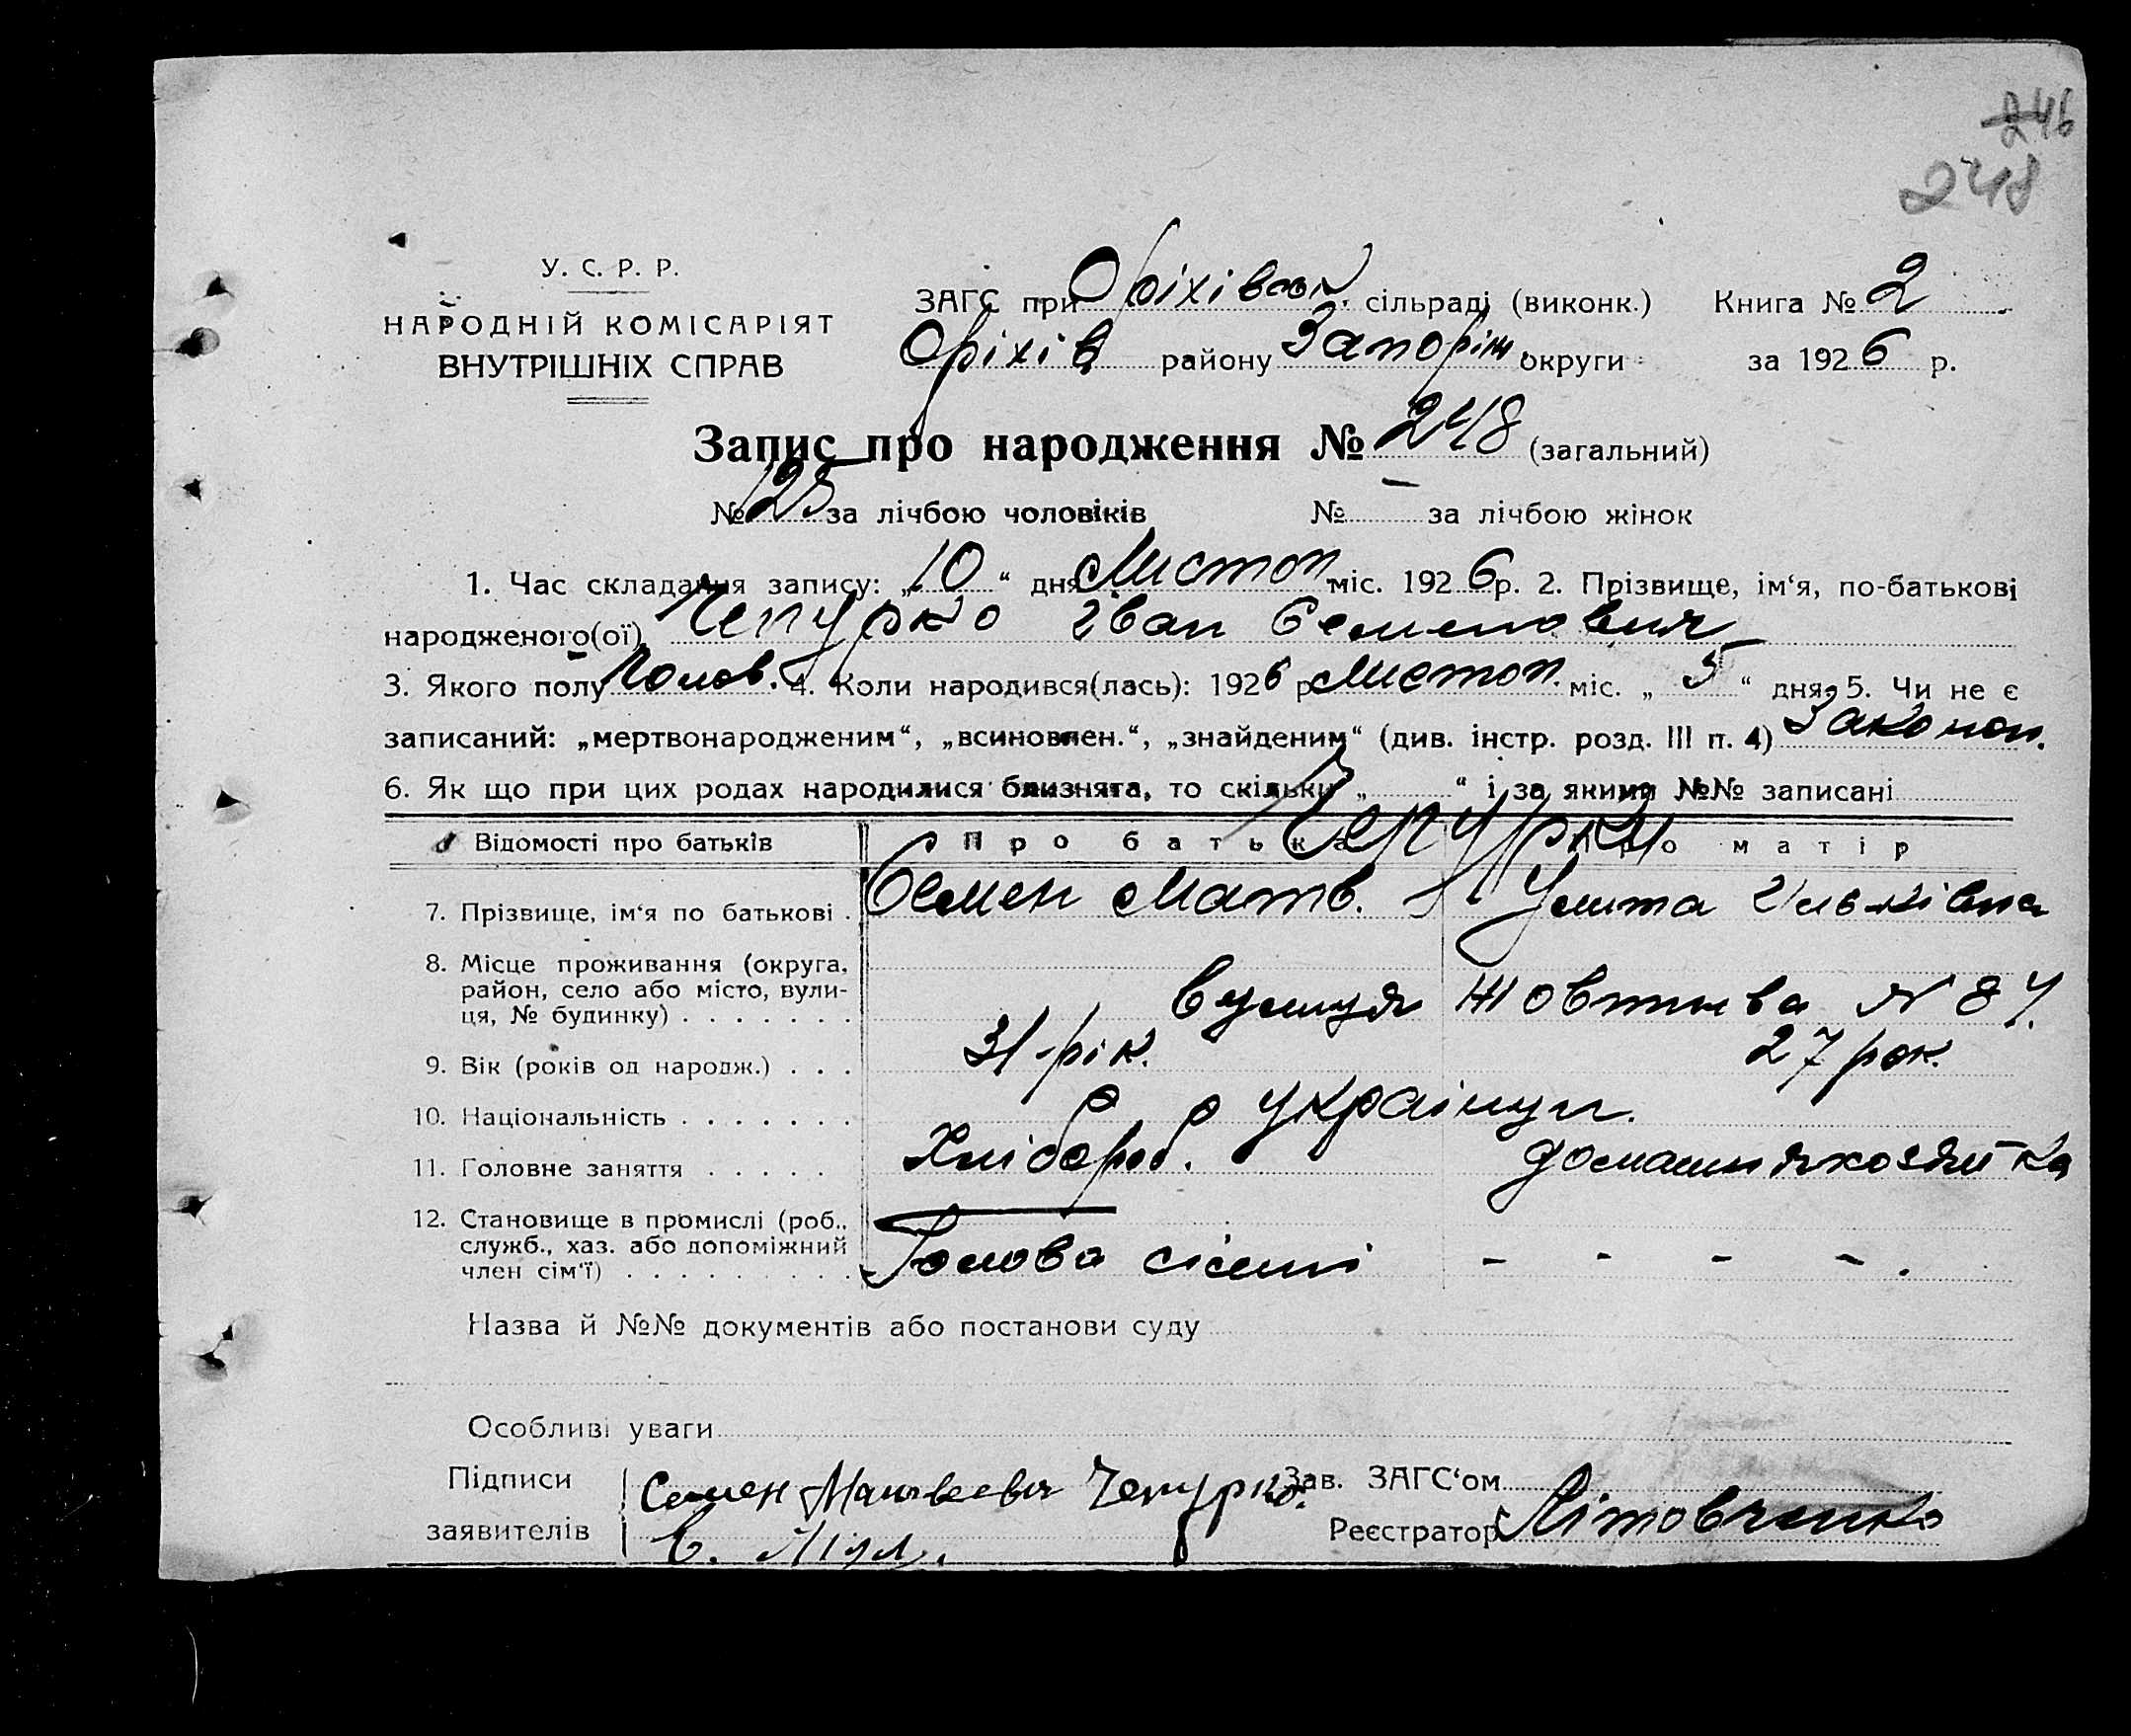 246
248
У. С. Р. Р.
НАРОДНІЙ КОМІСАРІЯТ
ВНУТРІШНІХ СПРАВ
ЗАГС при Оріхівськ. сільраді (виконк.) Книга № 2
Оріхів району Запоріж округи за 1926 р.
Запис про народження № 248 (загальний)
№ 125 за лічбою чоловіків № — за лічбою жінок
1. Час складання запису: „10“ дня Листоп міс. 1926 р. 2. Прізвище, ім‘я, по-батькові
народженого(ої) Чепурко Іван Семенович
3. Якого полу Чолов. 4. Коли народився(лась): 1926 р Листоп. міс. „5“ дня, 5. Чи не є
записаний: „мертвонародженим“, „всиновлен.“, „знайденим“ (див. інстр. розд. III п. 4) Законон.
6. Як що при цих родах народилися близнята, то скільки „ “ і за якими №№ записані
Відомості про батьків Про батька Про матір
Чепурки
7. Прізвище, ім‘я по батькові . Семен Матв. Улита Ільківна
8. Місце проживання (округа,
район, село або місто, вули-
ця, № будинку) . . . . . . . вулиця Жовтнева № 87.
9. Вік (років од народж.) . . . 31-рік. 27 рок.
10. Національність . . . . . . . Українци.
11. Головне заняття . . . . . Хлібороб. домашняхозяйка
12. Становище в промислі (роб.,
служб., хаз. або допоміжний
член сім‘ї) . . . . . . . . . Голова сісемі - - - - .
Назва й №№ документів або постанови суду
Особливі уваги
Підписи Семен Матвеевич Чепурко. Зав. ЗАГС‘ом
заявителів Реєстратор Літовченко